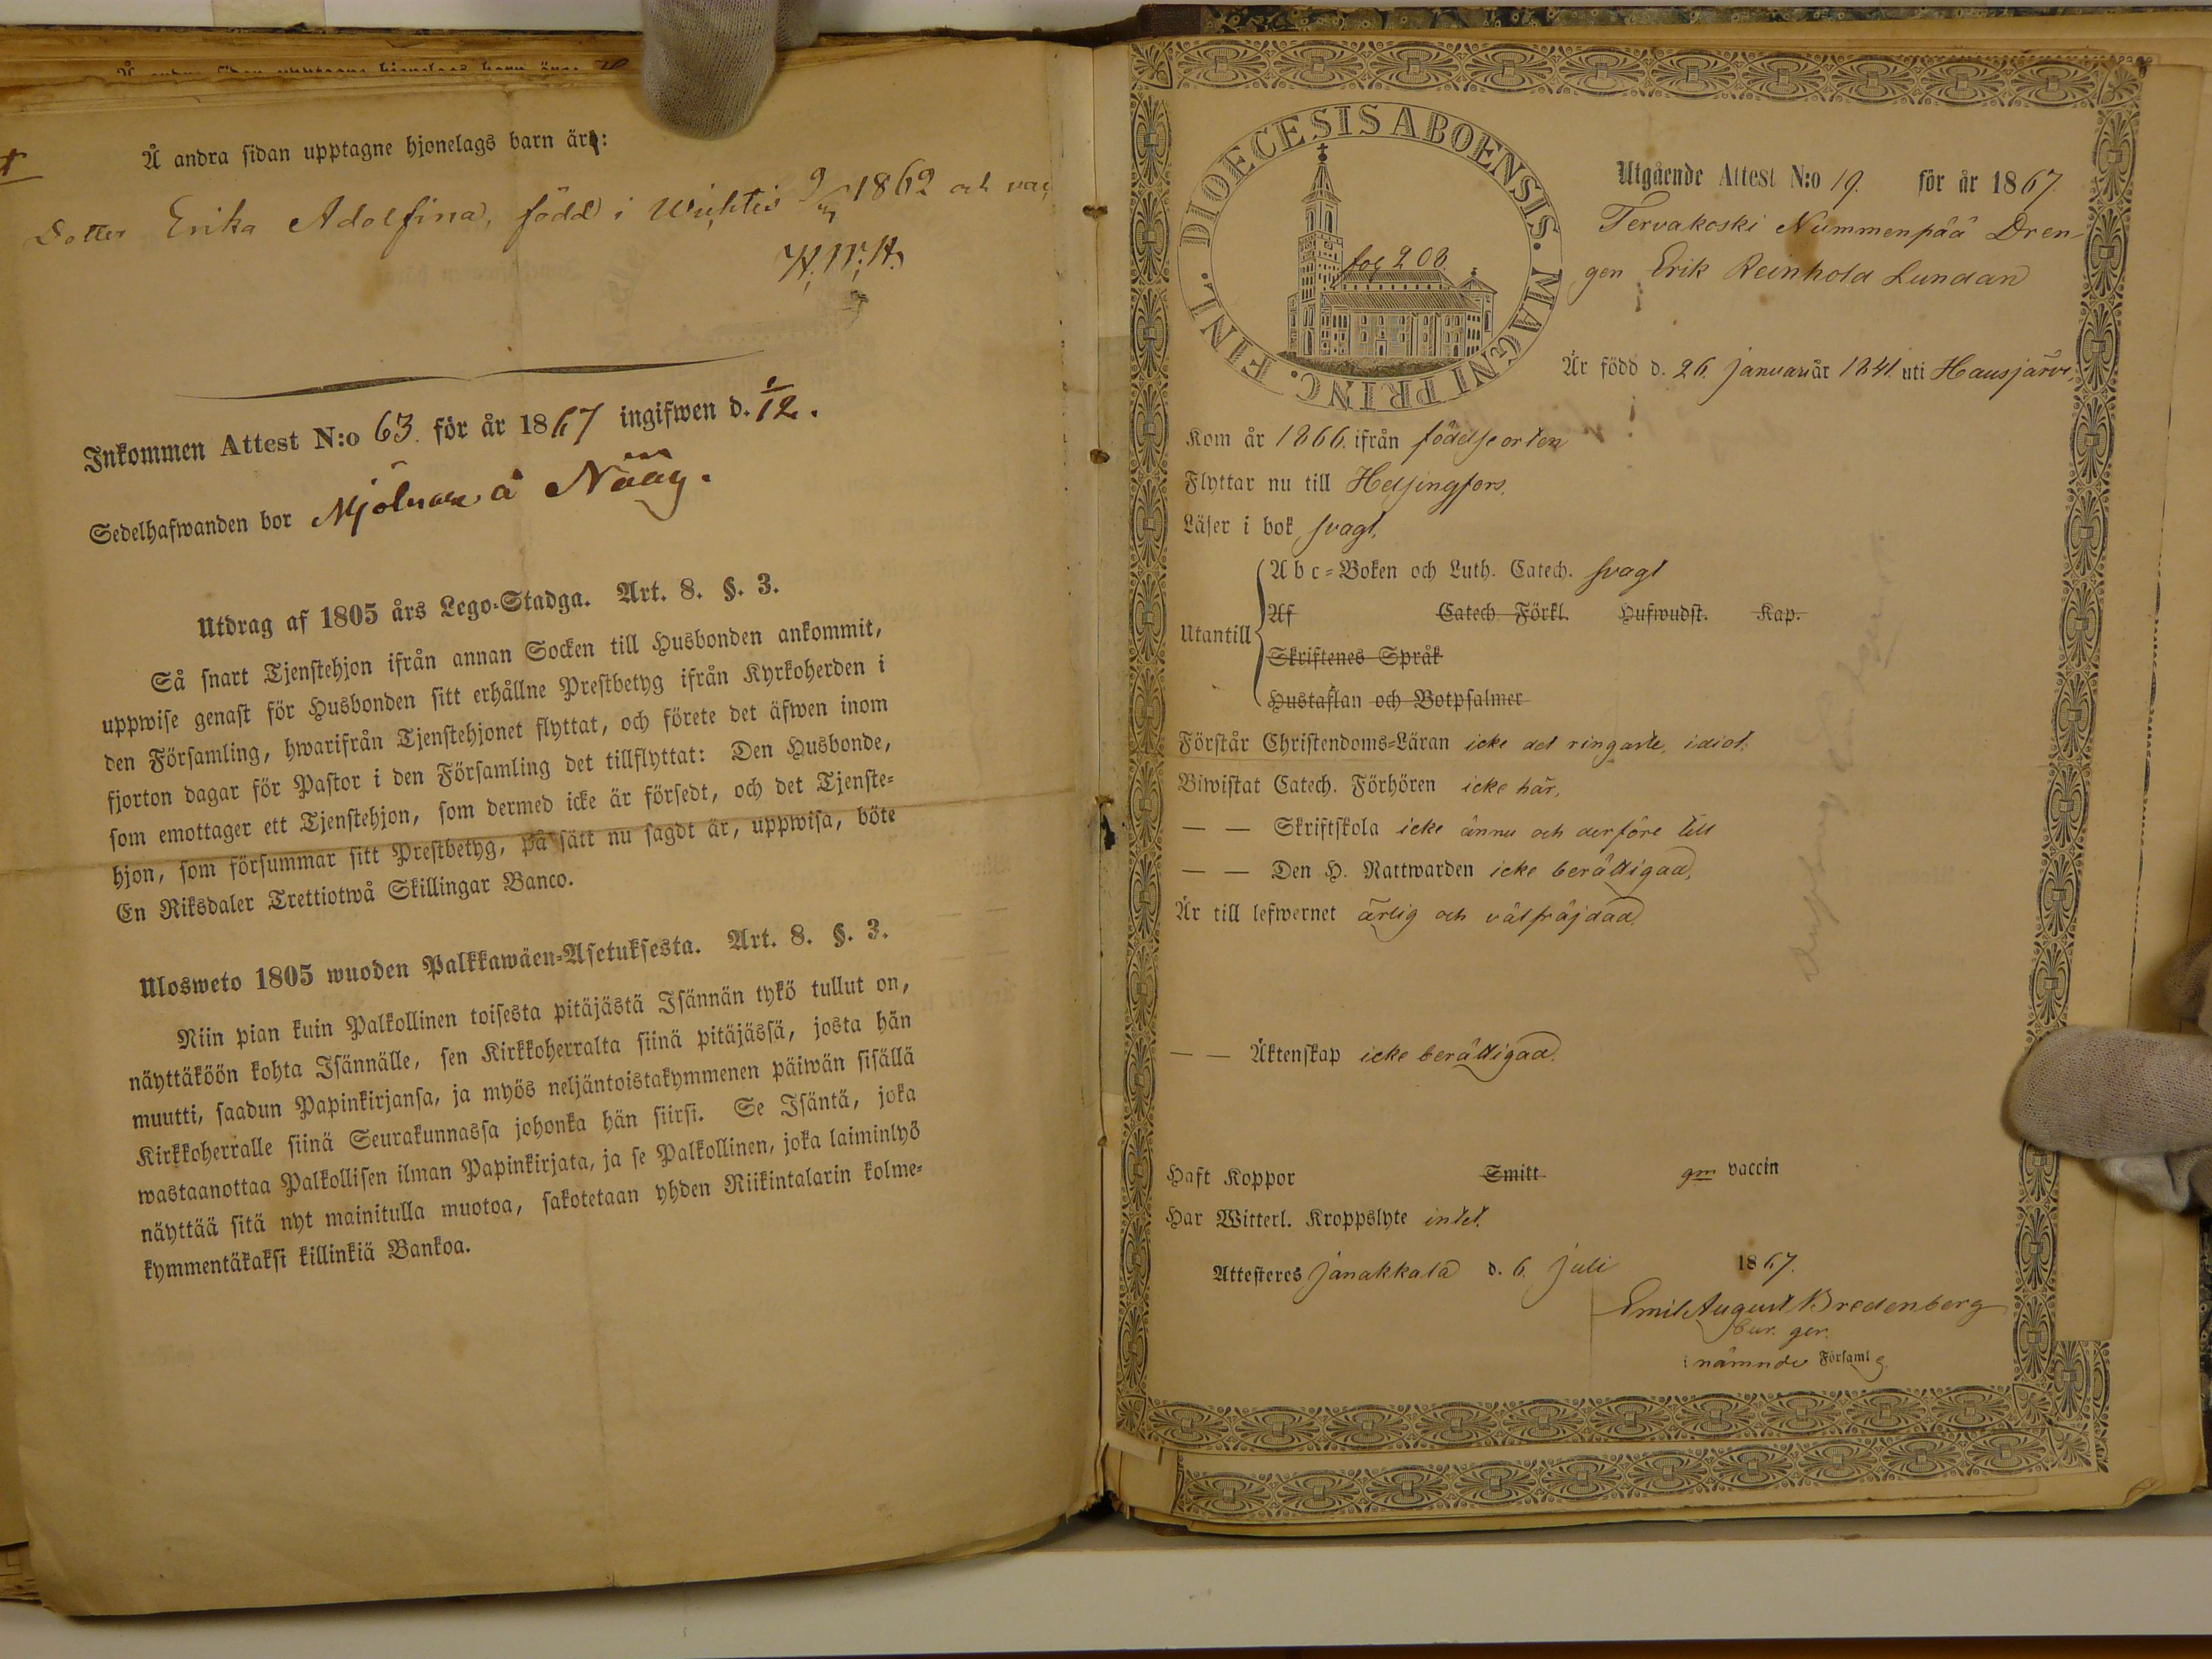 Å andra sidan upptagne hjonelags barn är:
Dotter Erika Adolfina, född i Wichtis 1862 och vac
Inkommen Attest N:o 63. för år 1867 ingifwen d. 1/12.
Sedelhafwanden bor Mjölnare å Nääs.
Utdrag af 1805 års Lego-Stadga. Art. 8. §. 3.
Så snart Tjenstehjon ifrån annan Socken till Husbonden ankommit,
uppwise genast för Husbonden sitt erhållne Prestbetyg ifrån Kyrkoherden i
den Församling, hwarifrån Tjenstehjonet flyttat, och förete det äfwen inom
fjorton dagar för Pastor i den Församling det tillflyttat: Den Husbonde,
som emottager ett Tjenstehjon, som dermed icke är försedt, och det Tjenste-
hjon, som försummar sitt Prestbetyg, på sätt nu sagdt är, uppwisa, böte
En Riksdaler Trettiotwå Skillingar Banco.
Ulosweto 1805 wuoden Palkkawäen-Asetuksesta. Art. 8. §. 3.
Niin pian kuin Palkollinen toisesta pitäjästä Isännän tykö tullut on,
näyttäköön kohta Isännälle, sen Kirkkoherralta siinä pitäjässä, josta hän
muutti, saadun Papinkirjansa, ja myös neljäntoistakymmenen päiwän sisällä
Kirkkoherralle siinä Seurakunnassa johonka hän siirsi. Se Isäntä, joka
wastaanottaa Palkollisen ilman Papinkirjata, ja se Palkollinen, joka laiminlyö
näyttää sitä nyt mainitulla muotoa, sakotetaan yhden Riikintalarin kolme-
kymmentäkaksi killinkiä Bankoa.
DIOECESIS ABOENSIS. MAGNI PRINC. FINL.
fol 208.
Utgående Attest N:o 19. för år 1867.
Tervakoski Nummenpää Dren-
gen Erik Reinhold Lundan
Är född d. 26. Januari år 1841. uti Hausjärvi,
Kom år 1866. ifrån födelseorten
Flyttar nu till Helsingfors.
Läser i bok svagt,
Utantill
A b c-Boken och Luth. Catech. svagt
Af Catech. Förkl. Hufwudst. Kap.
Skriftenes Språk
Hustaflan och Botpsalmer
Förstår Christendoms-Läran icke det ringaste, idiot.
Biwistat Catech. Förhören icke här,
— — Skriftskola icke ännu och derföre till
— — Den H. Nattwarden icke berättigad,
Är till lefwernet ärlig och välfräjdad.
— — Äktenskap icke berättigad.
Haft Koppor Smitt gm vaccin
Har Witterl. Kroppslyte intet.
Attesteres Janakkala d. 6. Juli 1867.
Emil August Bredenberg
i nämnde Församl g.